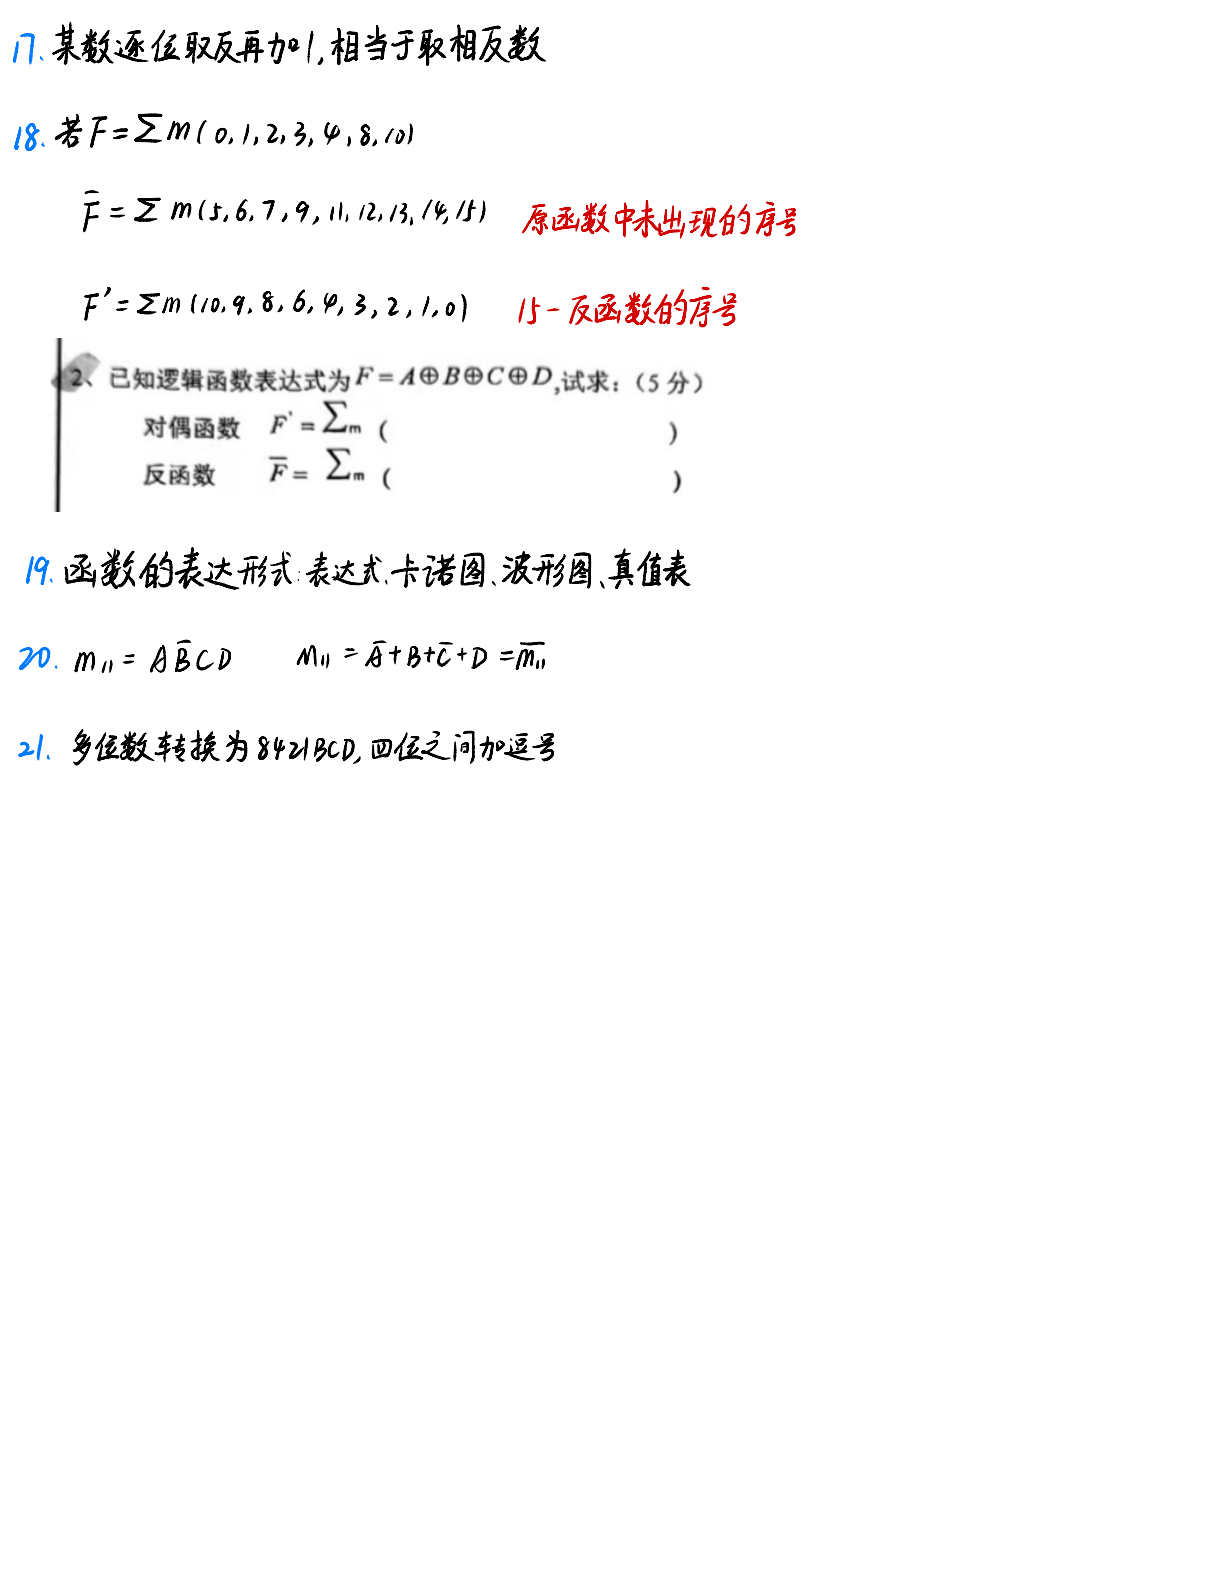 17. 某数逐位取反再加1,相当于取相反数
18. 若F=∑m(0,1,2,3,4,8,10)
F̅=∑m(5,6,7,9,11,12,13,14,15) 原函数中未出现的序号
F'=∑m(10,9,8,6,4,3,2,1,0) 15-反函数的序号
2、已知逻辑函数表达式为F=A⊕B⊕C⊕D,试求:(5分)
对偶函数 F'=∑m( )
反函数 F̅=∑m( )
19. 函数的表达形式:表达式、卡诺图、波形图、真值表
20. m₁₁=AB̅CD M₁₁=A̅+B+C̅+D=m̅₁₁
21. 多位数转换为8421BCD,四位之间加逗号